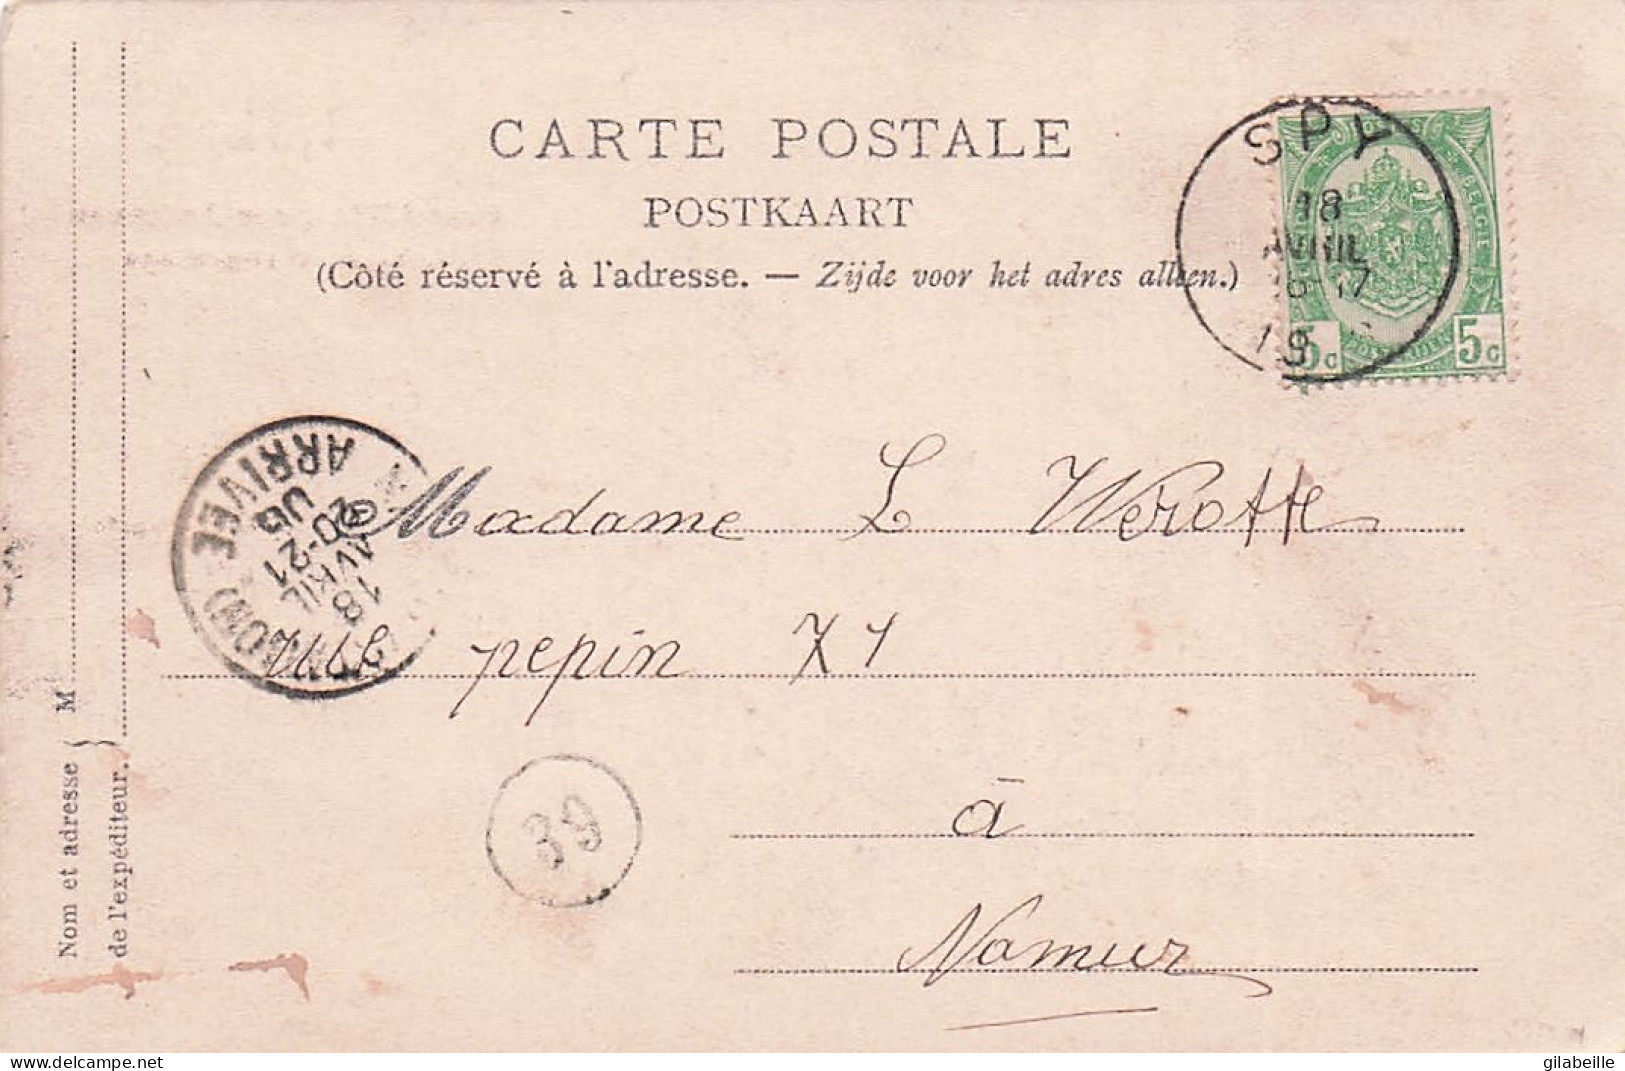 CARTE POSTALE
POSTKAART
(Côté réservé à l'adresse. — Zijde voor het adres alleen.)
SPY
18
AVRIL
6-17
19
BELGIE
5c 5c
ARRIVEE
05
20-21
AVRIL
18
Madame L Werotte
rue pepin 71
39
à
Namur
Nom et adresse
de l'expéditeur. } M
delcampe.net
gilabeille